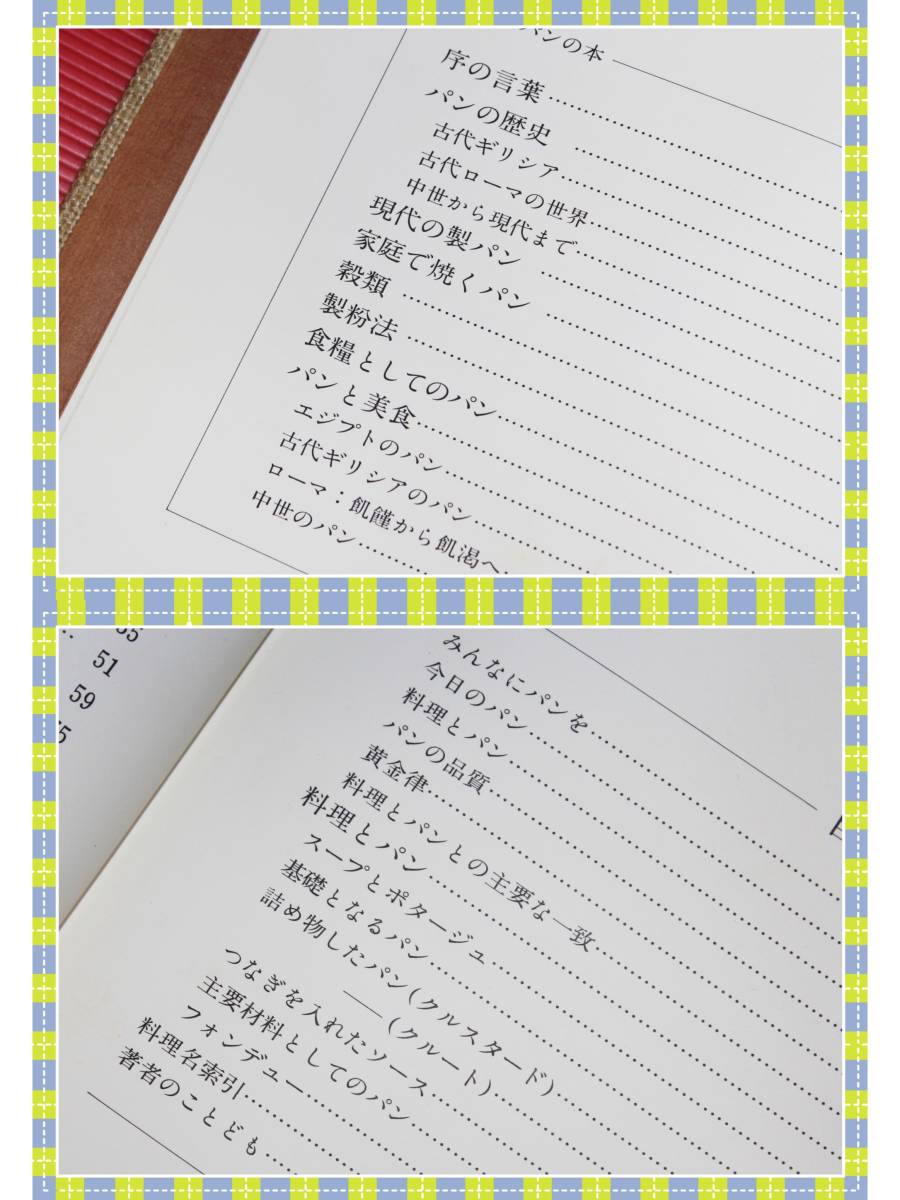 パンの本
序の言葉……………
パンの歴史 ……………
古代ギリシア……………
古代ローマの世界……………
中世から現代まで……………
現代の製パン ……………
家庭で焼くパン ……………
穀類 ……………
製粉法 ……………
食糧としてのパン……………
パンと美食……………
エジプトのパン……………
古代ギリシアのパン……………
ローマ：飢饉から飢渇へ……
中世のパン……………
51
59
みんなにパンを……………
今日のパン……………
料理とパン……………
パンの品質……………
黄金律……………
料理とパンとの主要な一致……………
料理とパン……………
スープとポタージュ……………
基礎となるパン……………
詰め物したパン(クルスタード)……………
――(クルート)……………
つなぎを入れたソース……………
主要材料としてのパン……………
フォンデュー……………
料理名索引……………
著者のことども……………